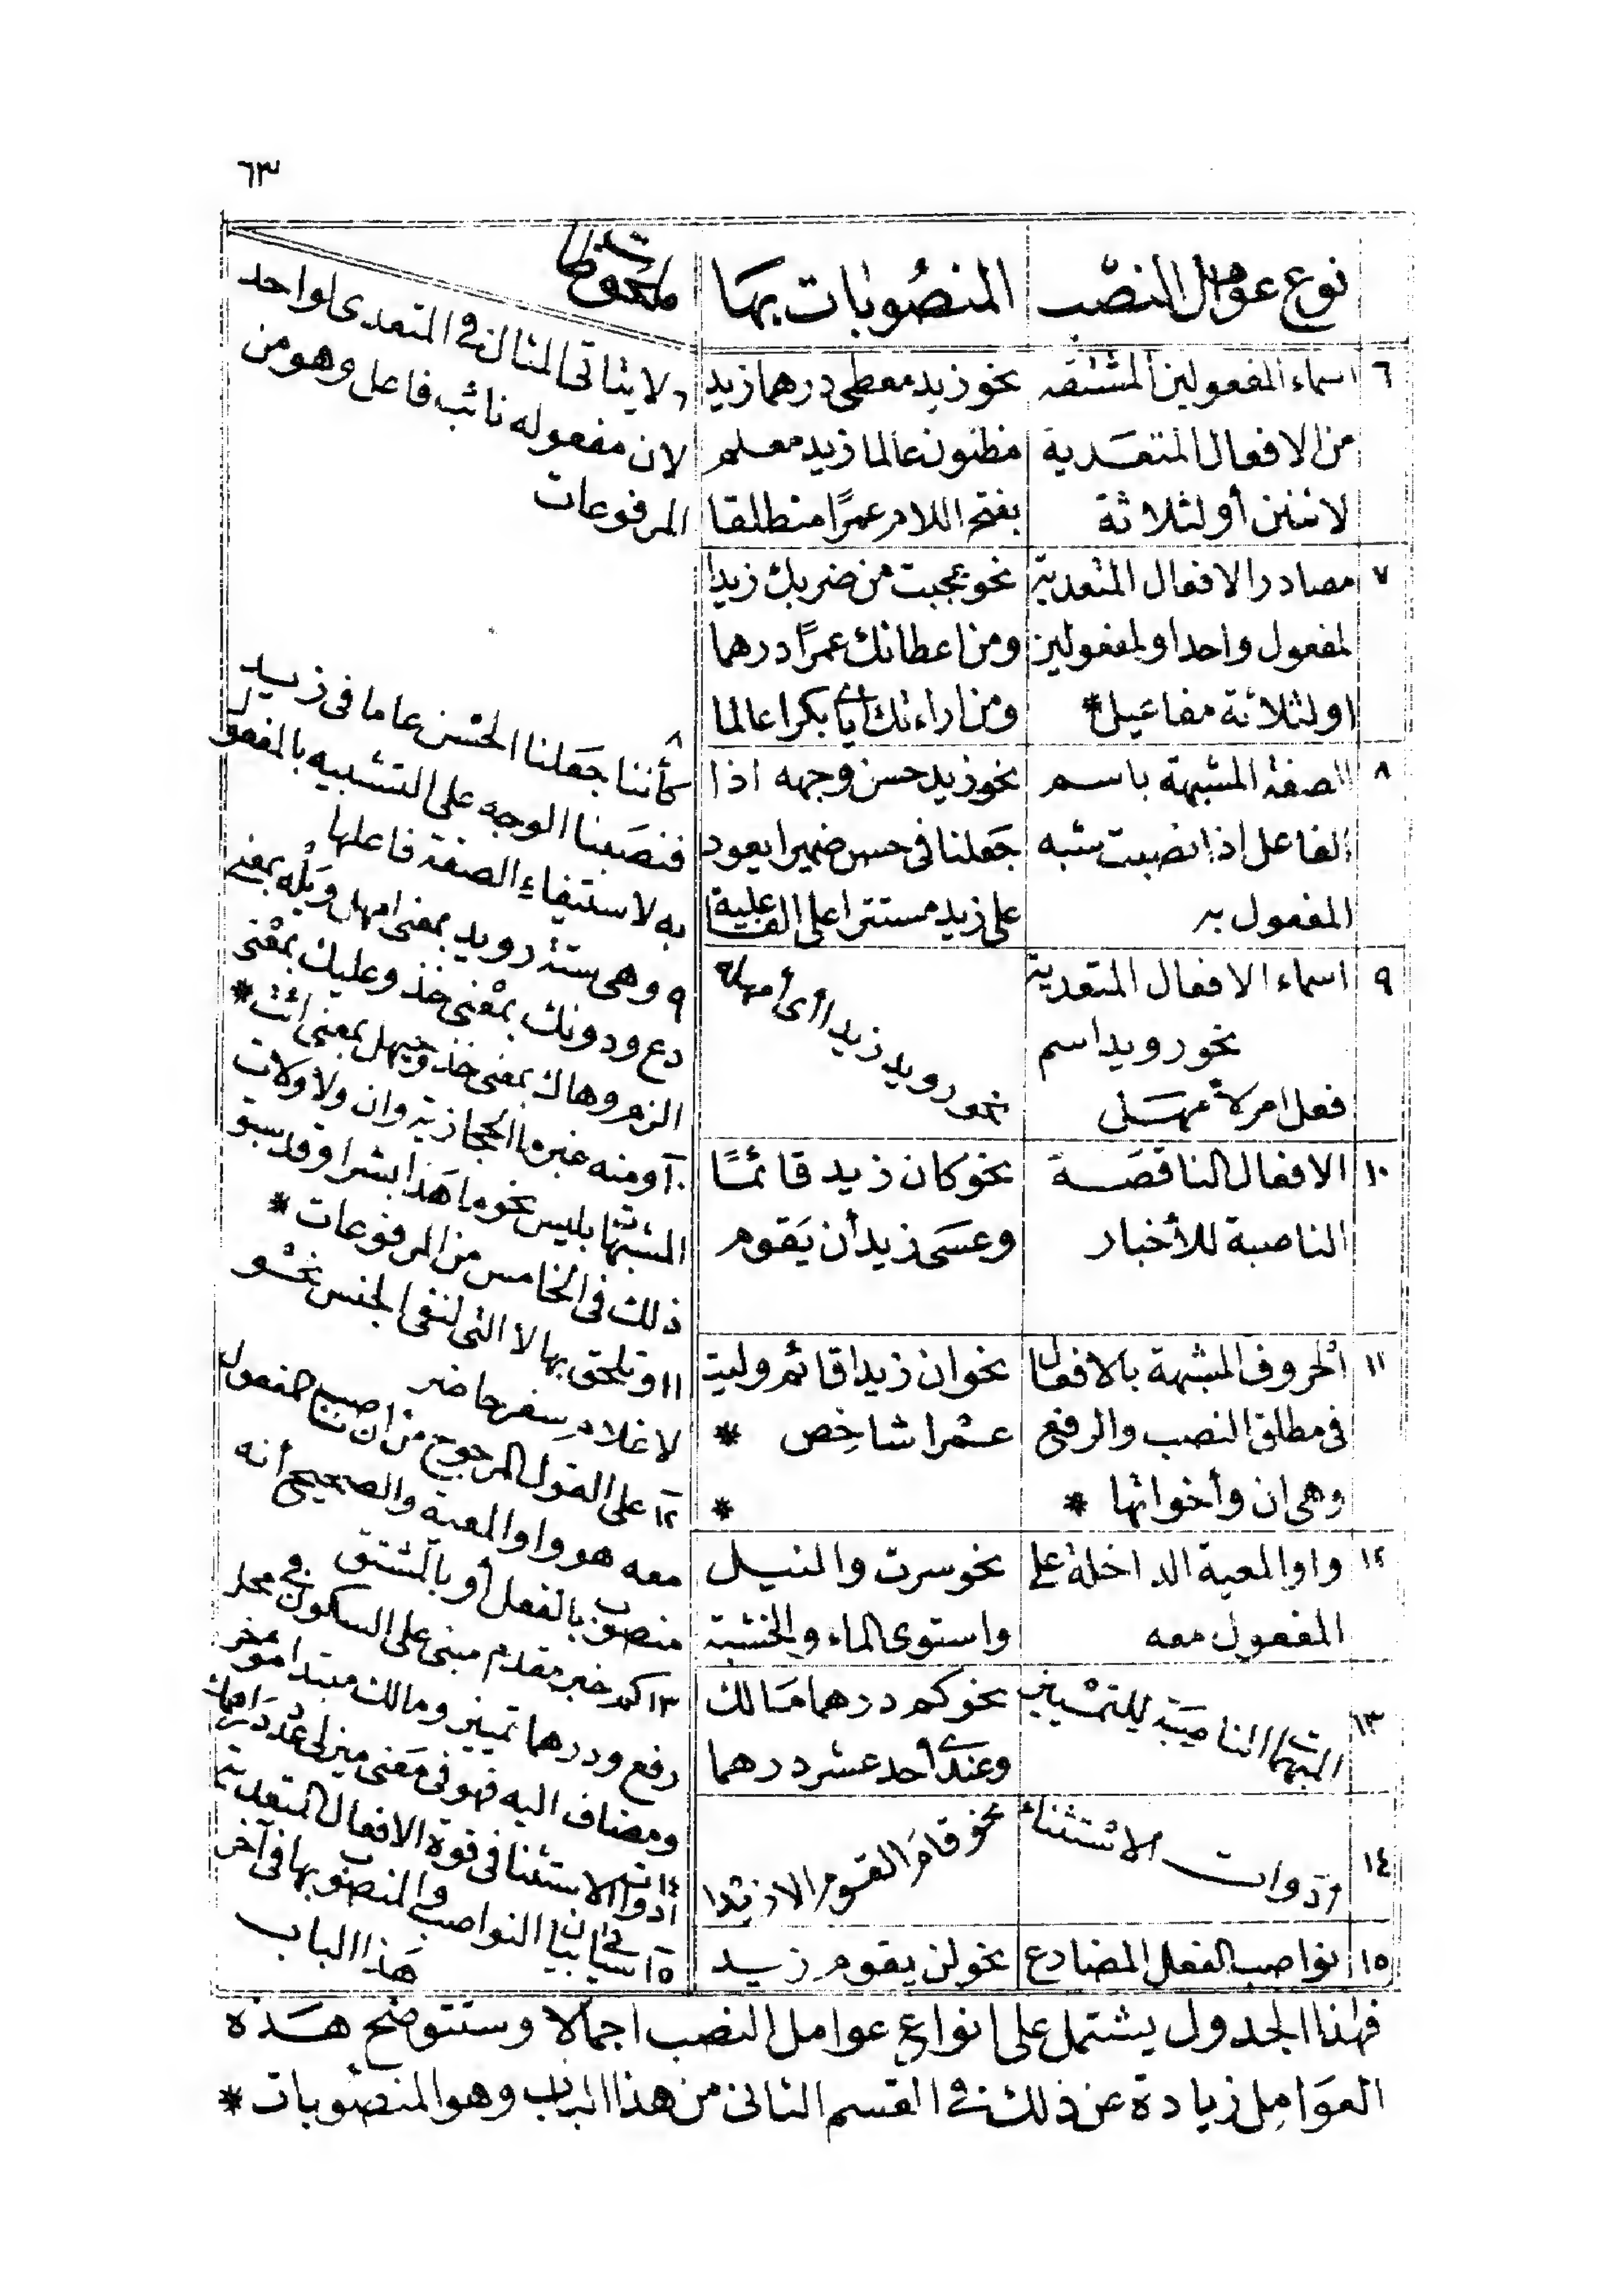 ٦٣
نوع عوامل النصب
المنصوبات بها
ملحوظات
٦
اسماء المفعولين المشتقه
من الافعال المتعدية
لاثنين أو لثلاثة
نحو زيد معطى درهما زيد
مظنون عالما زيد معلم
بفتح اللام عمرًا منطلقا
٦ لا يتاتى المثال فى المتعدى لواحد
لان مفعوله نائب فاعل وهو من
المرفوعات
٧
مصادر الافعال المتعدية
لمفعول واحد او لمفعولين
او لثلاثة مفاعيل *
نحو عجبت من ضربك زيدا
ومن اعطائك عمرًا درهما
ومن اراءتك أبا بكر عالما
٨
الصفة المشبهة باسم
الفاعل اذا نصبت شبه
المفعول به
نحو زيد حسن وجهه اذا
جعلنا فى حسن ضميرا يعود
على زيد مستترا على الفاعلية
٨ كأننا جعلنا الحسن عاما فى زيد
فنصبنا الوجه على التشبيه بالمفعول
به لاستيفاء الصفة فاعلها
٩
اسماء الافعال المتعدية
نحو رويد اسم
فعل امر كأمهل
نحو رويد زيدا أى أمهله
٩ وهى ستة رويد بمعنى امهل وبله بمعنى
دع ودونك بمعنى خذ وعليك بمعنى
الزم وهاك بمعنى خذ وحيهل بمعنى ائت *
١٠
الافعال الناقصة
الناصبة للأخبار
نحو كان زيد قائمًا
وعسى زيد أن يقوم
١٠ ومنه خبر ما الحجازية وان ولا ولات
المشبهات بليس نحو ما هذا بشرا وقد سبق
ذلك فى الخامس من المرفوعات *
١١
الحروف المشبهة بالافعال
فى مطلق النصب والرفع
وهى ان وأخواتها *
نحو ان زيدا قائم وليت
عمرا شاخص *
*
١١ وتلحق بها لا التى لنفى الجنس نحو
لا غلام سفر حاضر
١٢
واو المعية الداخلة على
المفعول معه
نحو سرت والنيل
واستوى الماء والخشبة
١٢ على القول المرجوح من ان ناصب المفعول
معه هو واو المعية والصحيح أنه
منصوب بالفعل أو بالمشتق
١٣
المبهمات الناصبة للتمييز
نحو كم درهما مالك
وعندى أحد عشر درهما
١٣ كم خبر مقدم مبنى على السكون فى محل
رفع ودرهما تمييز ومالك مبتدا مؤخر
ومضاف اليه فهو فى معنى عدد دراهمك
١٤
أدوات الاستثناء
نحو قام القوم الا زيدا
١٤ أدوات الاستثنا فى قوة الافعال المتعدية
١٥
نواصب الفعل المضارع
نحو لن يقوم زيد
١٥ سياتى بيان النواصب والمنصوب بها فى آخر
هذا الباب
فهذا الجدول يشتمل على انواع عوامل النصب اجمالا وستتوضح هذه
العوامل زيادة عن ذلك فى القسم الثانى من هذا الباب وهو المنصوبات *